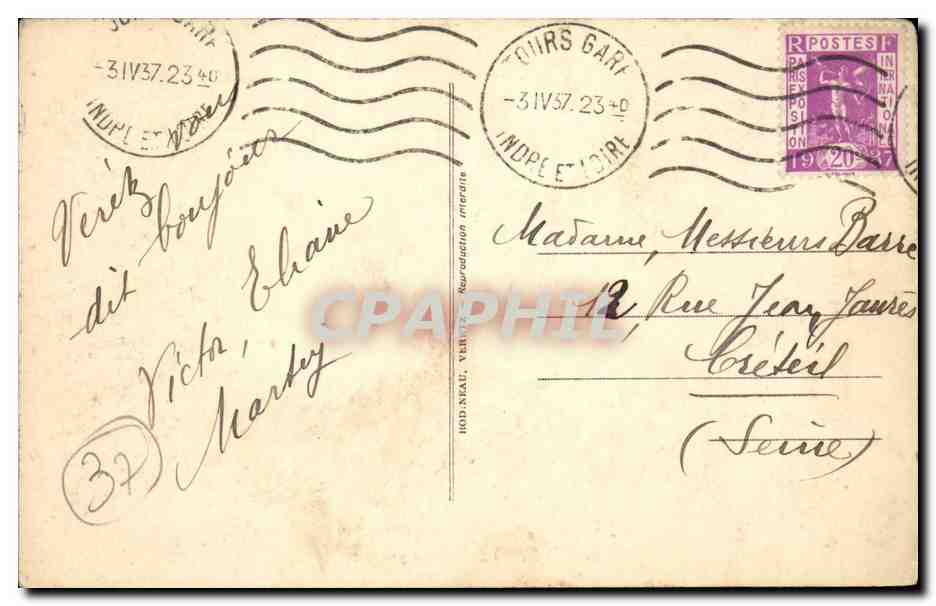 TOURS GARE
-3IV37.23 40
INDRE ET LOIRE
TOURS GARE
-3IV37.23 40
INDRE ET LOIRE
RF POSTES
PARIS EXPOSITION INTERNATIONALE
1937
20
Veretz vous
dit bonjour
Victor, Eliane
37
BODINEAU, VERETZ Reproduction interdite
CPAPHIL
Madame, Messieurs Barre
12, Rue Jean Jaurès
Créteil
(Seine)